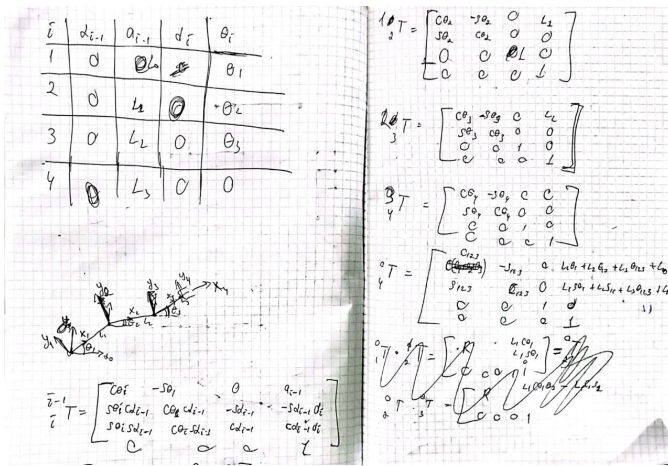 i αi-1 ai-1 di θi
1 0 L0 θ1
2 0 L1 0 θ2
3 0 L2 0 θ3
4 0 L3 0 0
x1 L1 θ1 x0 x2 θ2 L2 y3 x3 θ3 y4 x4
i-1 i T = [ cθi -sθi 0 ai-1
sθi cαi-1 cθi cαi-1 -sαi-1 -sαi-1 di
sθi sαi-1 cθi sαi-1 cαi-1 cαi-1 di
0 0 0 1 ]
1 2 T = [ cθ2 -sθ2 0 L1
sθ2 cθ2 0 0
0 0 1 0
0 0 0 1 ]
2 3 T = [ cθ3 -sθ3 0 L2
sθ3 cθ3 0 0
0 0 1 0
0 0 0 1 ]
3 4 T = [ cθ4 -sθ4 0 0
sθ4 cθ4 0 0
0 0 1 0
0 0 0 1 ]
0 4 T = [ C123 -S123 0 L1θ1+L2θ12+L3θ123+L0
S123 C123 0 L1Sθ1+L2S12+L3θ123
0 0 1 0
0 0 0 1
0 1 T · 1 2 T = [ R L1Cθ1
L1Sθ1
0 0 0 1 ] = 0 2 T
0 2 T · 2 3 T = [ R
0 0 0 1